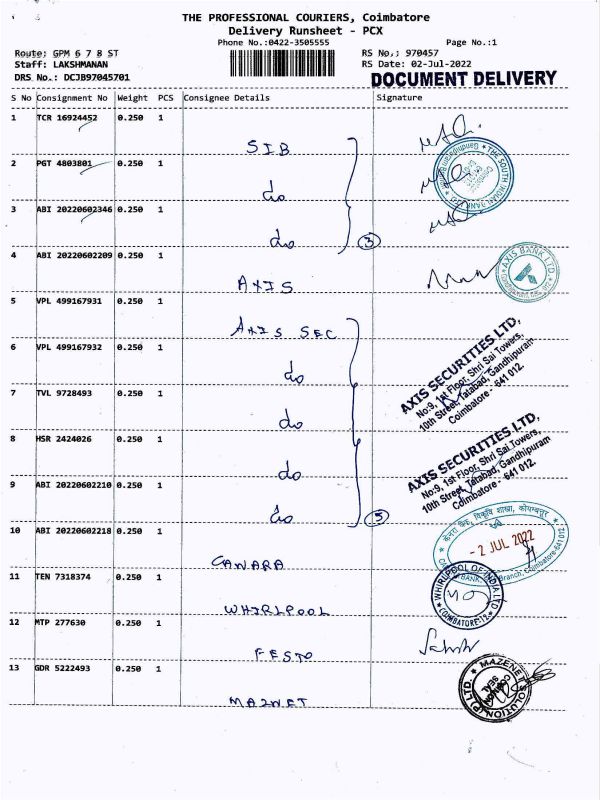 THE PROFESSIONAL COURIERS, Coimbatore
Delivery Runsheet - PCX
Phone No.:0422-3505555
Page No.:1
Route: GPM 6 7 8 ST
RS No.: 970457
Staff: LAKSHMANAN
RS Date: 02-Jul-2022
DRS No.: DCJB97045701
DOCUMENT DELIVERY
S No Consignment No Weight PCS Consignee Details Signature
1 TCR 16924452 0.250 1
SIB
2 PGT 4803801 0.250 1
do
THE SOUTH INDIAN BANK LTD
3 ABI 20220602346 0.250 1
do
3
4 ABI 20220602209 0.250 1
AXIS
AXIS BANK LTD.
5 VPL 499167931 0.250 1
AXIS SEC
6 VPL 499167932 0.250 1
do
AXIS SECURITIES LTD,
No:9, 1st Floor, Shri Sai Towers,
10th Street, Tatabad, Gandhipuram
Coimbatore - 641 012.
7 TVL 9728493 0.250 1
do
8 HSR 2424026 0.250 1
do
AXIS SECURITIES LTD,
No:9, 1st Floor, Shri Sai Towers,
10th Street, Tatabad, Gandhipuram
Coimbatore - 641 012.
9 ABI 20220602210 0.250 1
do
5
10 ABI 20220602218 0.250 1
CANARA
केनरा बैंक, विकृषि शाखा, कोयम्बत्तूर
- 2 JUL 2022
Branch, Coimbatore-641 012
11 TEN 7318374 0.250 1
WHIRLPOOL
WHIRLPOOL OF INDIA LTD
COIMBATORE-12
12 MTP 277630 0.250 1
FESTO
13 GDR 5222493 0.250 1
MAZNET
MAZENET SOLUTION (P) LTD.
COMMON
SEAL